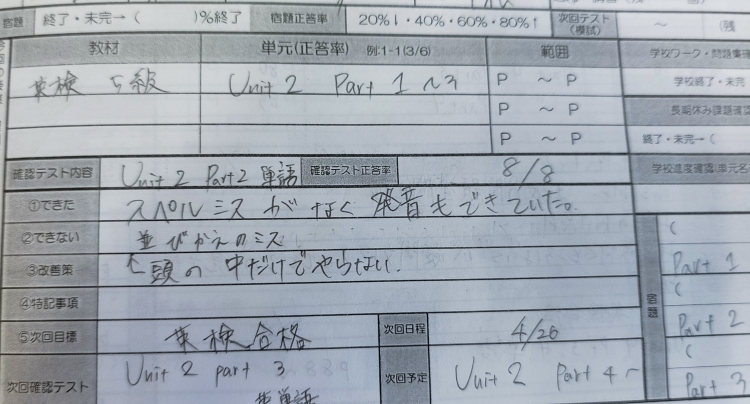 宿題 終了・未完→( )%終了 宿題正答率 20%↓・40%・60%・80%↑ 次回テスト(模試) ～ (残
教材 単元(正答率) 例:1-1(3/6) 範囲 学校ワーク・問題集確
英検 5級 Unit 2 Part 1～3 P ～ P 学校終了・未完
P ～ P 長期休み課題確認
P ～ P 終了・未完→(
確認テスト内容 Unit 2 Part2 単語 確認テスト正答率 8/8 学校進度確認(単元名)
①できた スペルミスがなく発音もできていた。
②できない 並びかえのミス
③改善策 頭の中だけでやらない。
④特記事項
⑤次回目標 英検合格 次回日程 4/26
次回確認テスト Unit 2 part 3 英単語 次回予定 Unit 2 Part 4～
宿題
( Part 1
( Part 2
( Part 3